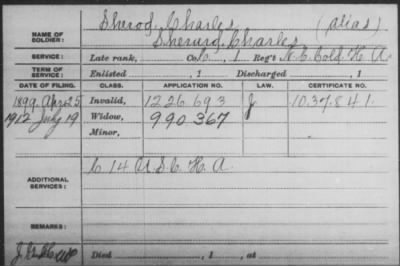 Sherod, Charles
NAME OF SOLDIER: (alias)
Sherurd, Charles
SERVICE: Late rank, Co. C, 1 Reg't N. C. Cold. H. A.
TERM OF SERVICE: Enlisted , 1 Discharged , 1
DATE OF FILING. CLASS. APPLICATION NO. LAW. CERTIFICATE NO.
1899 Apr 25 Invalid, 1226693 J 1037841.
1912 July 19 Widow, 990367
Minor,
ADDITIONAL SERVICES: C 14 U. S. C. H. A.
REMARKS:
Died , 1 , at